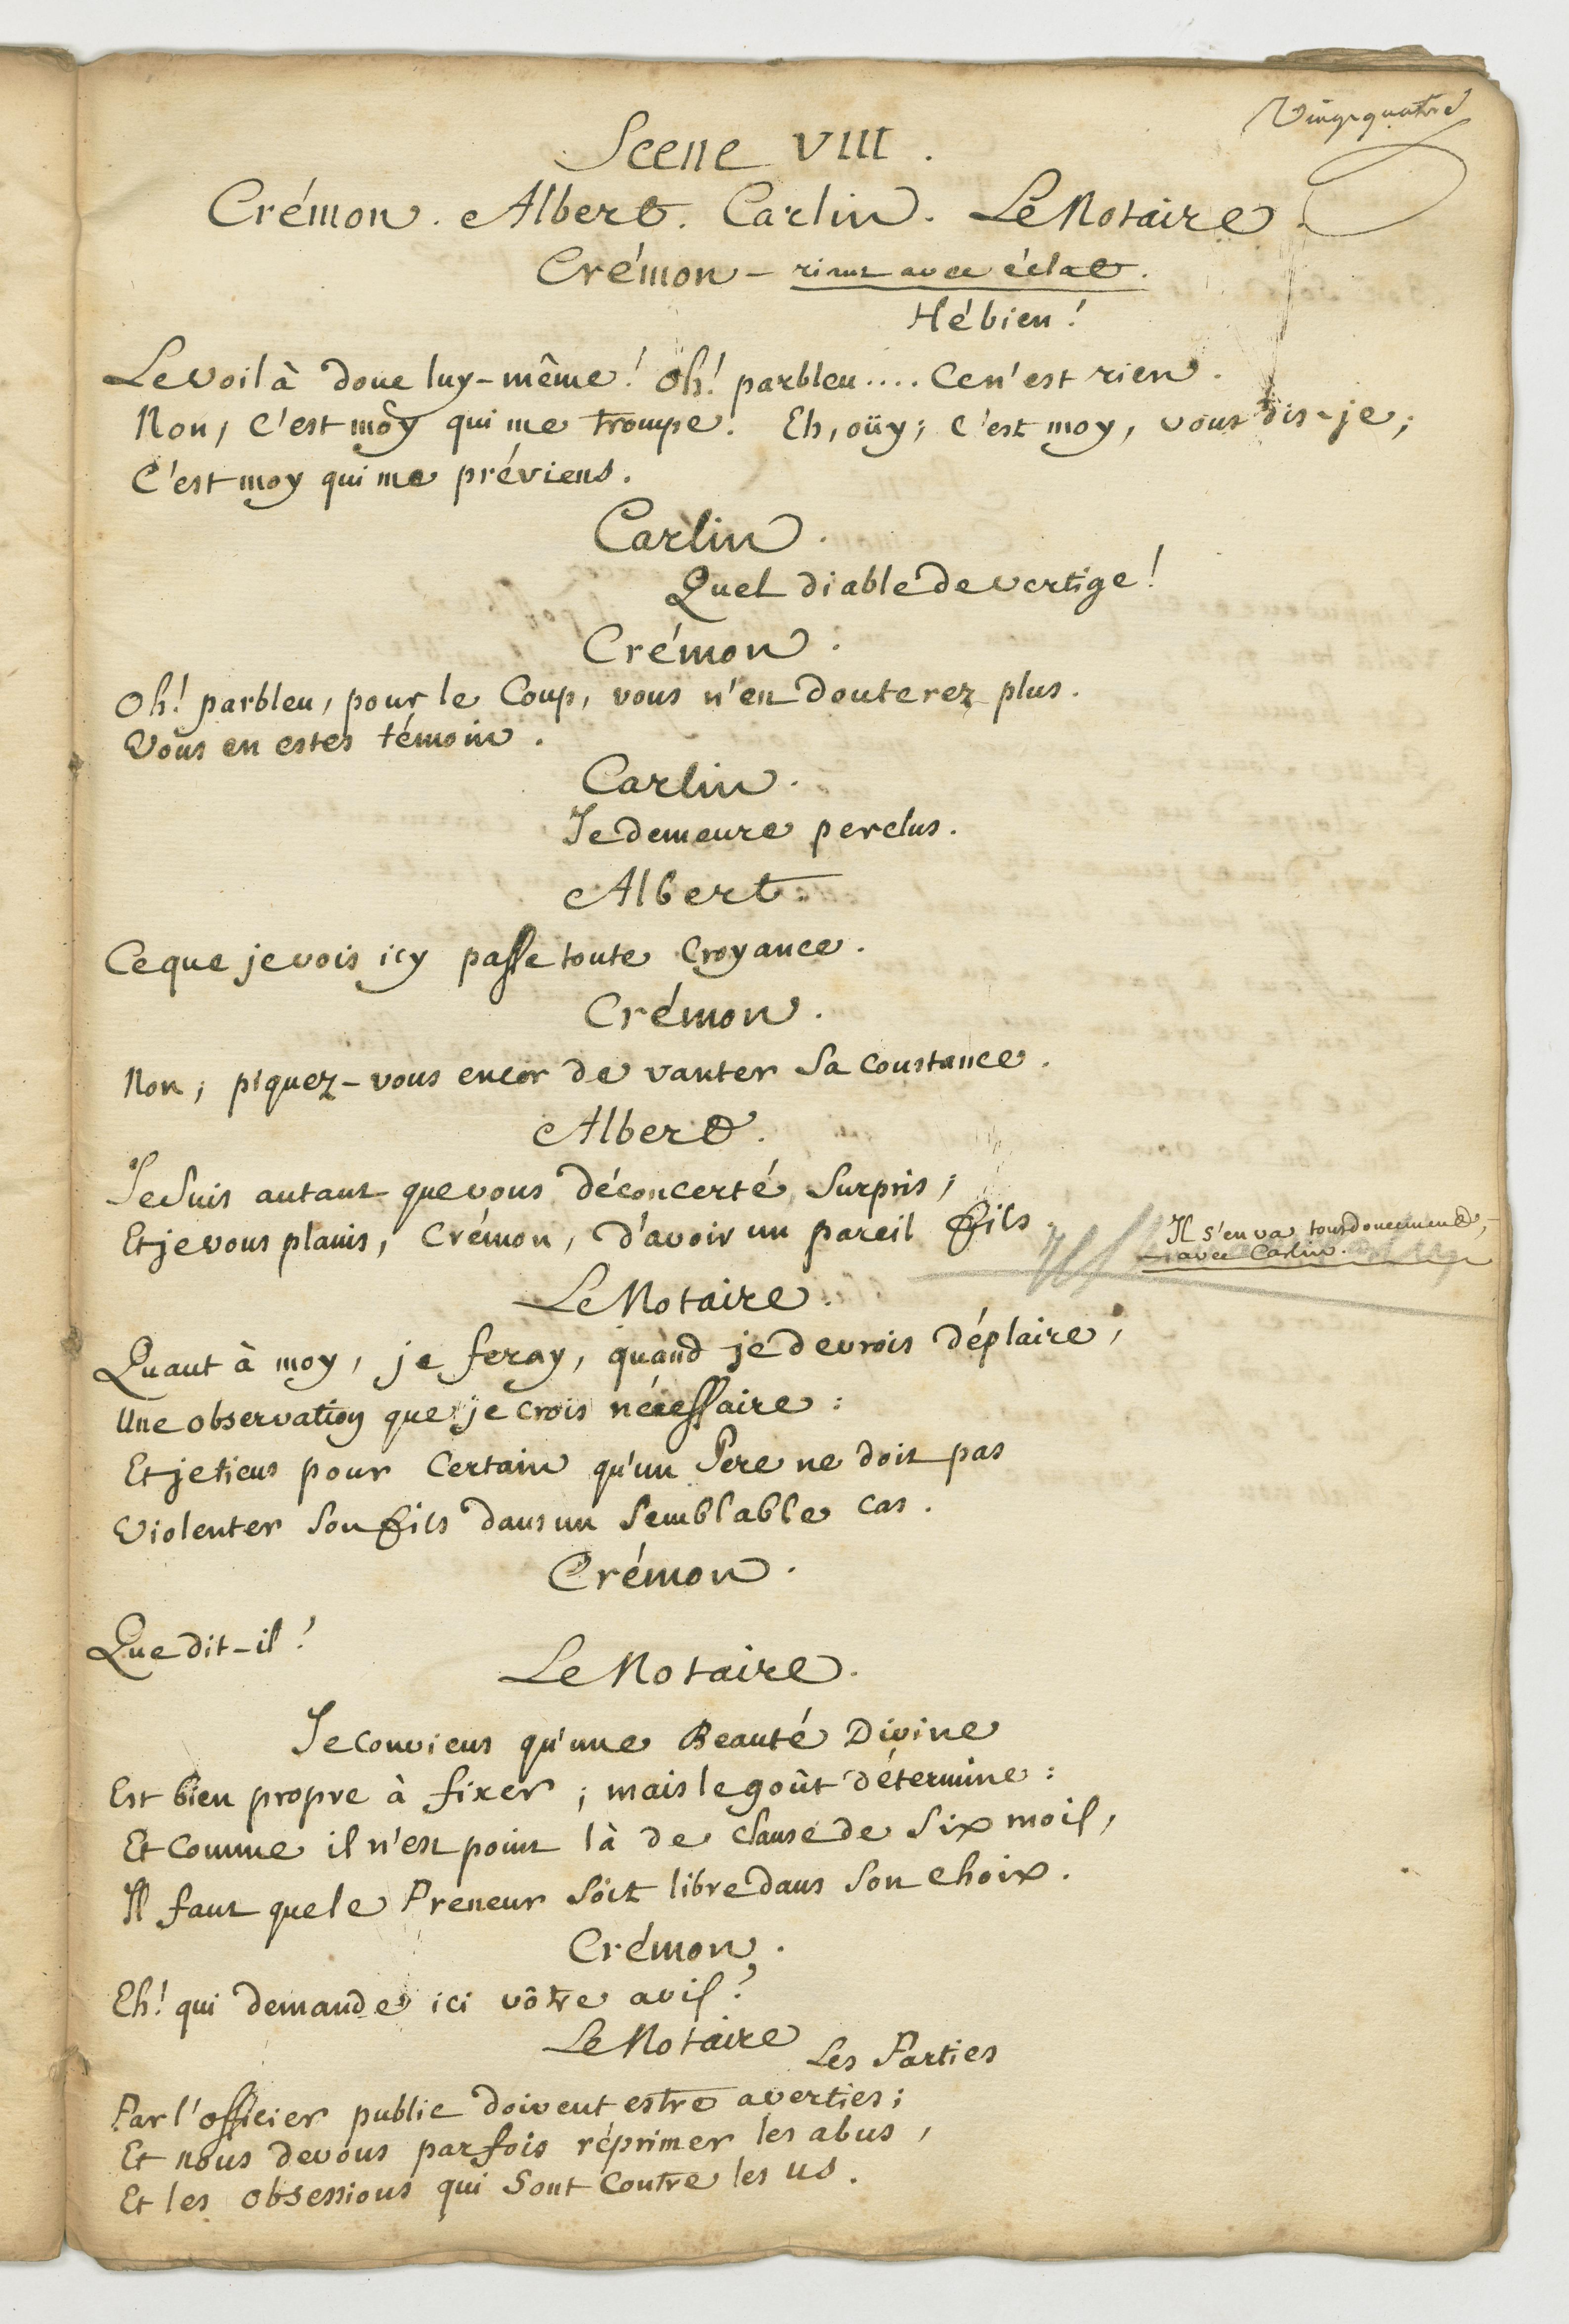 Vingt quatre
Scene VIII.
Crémon. Albert. Carlin. Le Notaire.
Crémon - riant avec éclat.
Hé bien!
Le voilà donc luy-même! Oh! parbleu.... Ce n'est rien.
Non, C'est moy qui me trompe. Eh, oüy; C'est moy, vous dis-je;
C'est moy qui me préviens.
Carlin.
Quel diable de vertige!
Crémon.
Oh! parbleu, pour le Coup, vous n'en douterez plus.
Vous en estes témoin.
Carlin.
Je demeure perclus.
Albert.
Ce que je vois icy passe toute Croyance.
Crémon.
Non; piquez-vous encor de vanter Sa constance.
Albert.
Je Suis autant que vous déconcerté, Surpris;
Et je vous plains, Crémon, d'avoir un pareil fils.
Il s'en va tout doucement,
avec Carlin.
Le Notaire.
Quant à moy, je feray, quand je devrois déplaire,
Une observation que je crois nécessaire:
Et je tiens pour Certain qu'un Pere ne doit pas
Violenter Son fils dans un Semblable Cas.
Crémon.
Que dit-il!
Le Notaire.
Je conviens qu'une Beauté Divine
Est bien propre à fixer; mais le goût détermine:
Et Comme il n'est point là de Clause de Six mois,
Il faut que le Preneur Soit libre dans Son Choix.
Crémon.
Eh! qui demande ici vôtre avis?
Le Notaire
Les Parties
Par l'officier public doivent estre averties;
Et nous devons parfois réprimer les abus,
Et les obsessions qui Sont Contre les us.